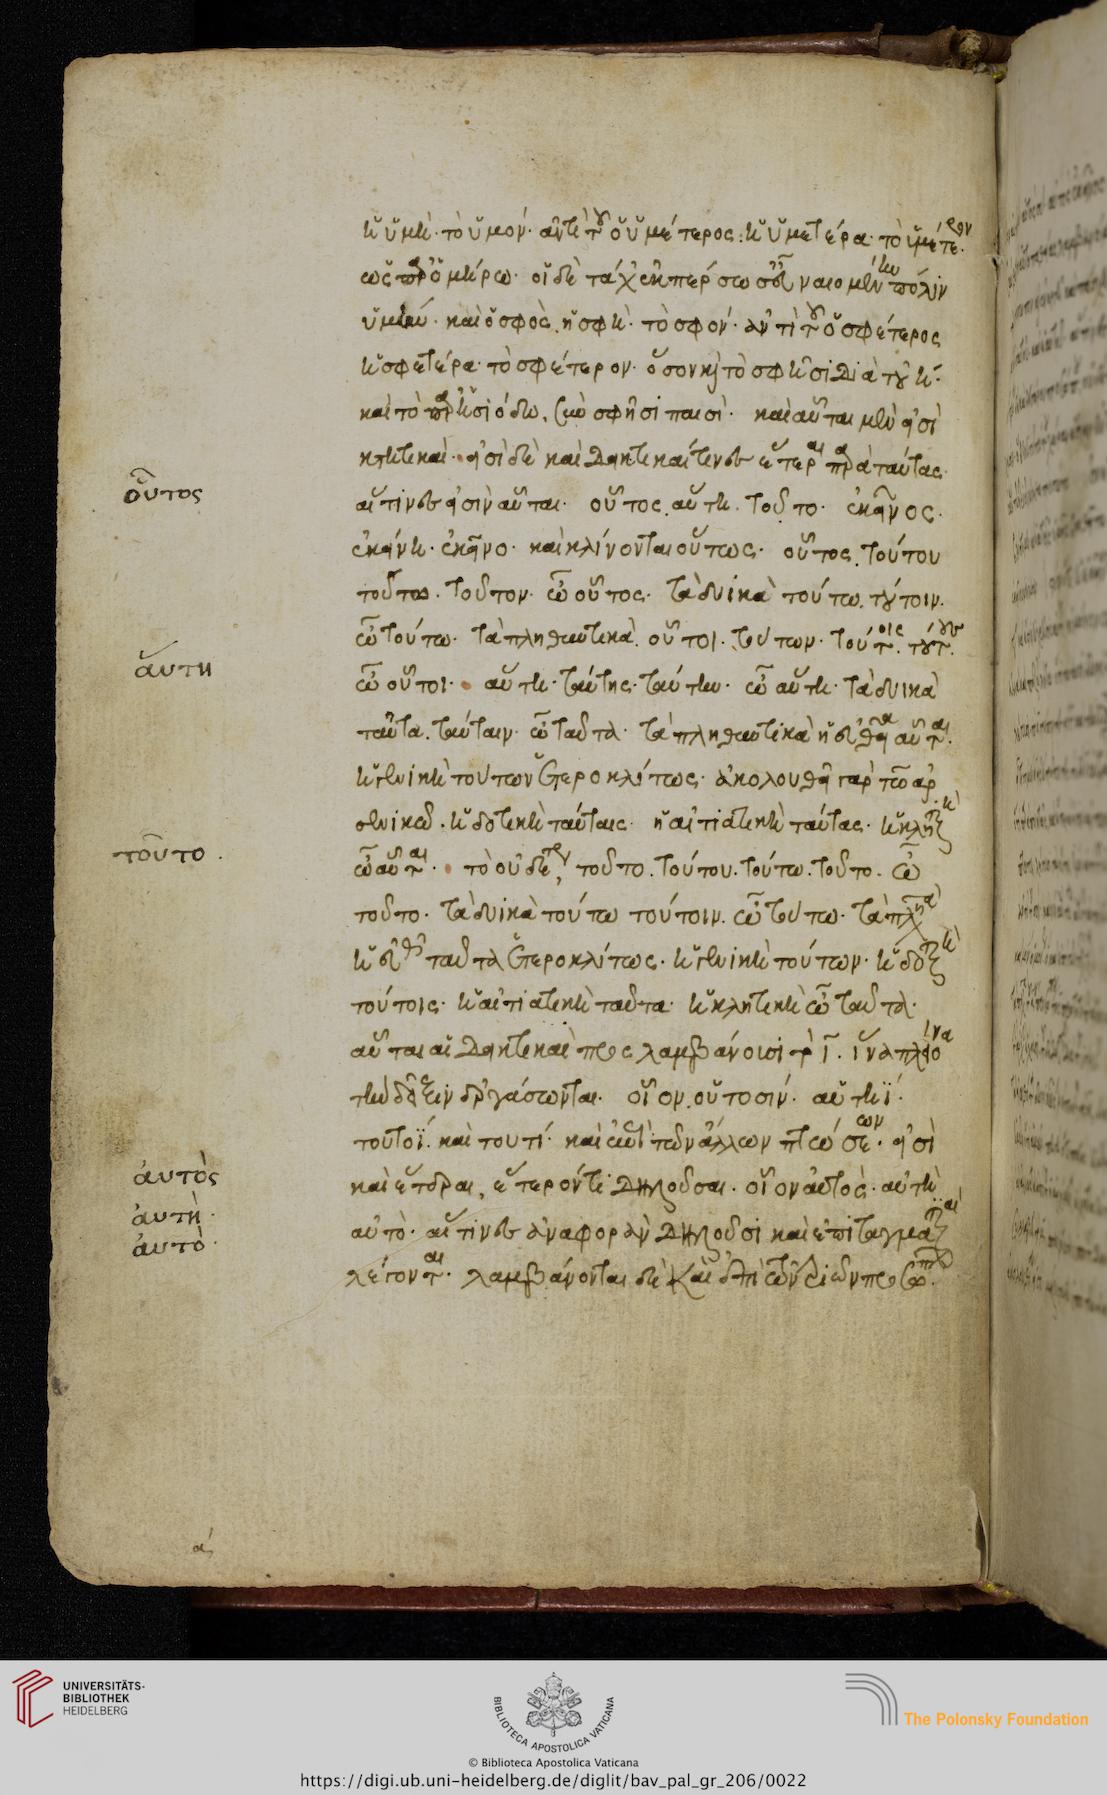 ἡ ὑμὴ· τὸ ὑμόν· ἀντὶ τοῦ ὁ ὑμέτερος· ἡ ὑμετέρα· τὸ ὑμέτερον·
ὡς παρ' ὁμήρω· οἱ δὲ τάχ' ἐκπέρσωσι ναιομένην πόλιν
ὑμήν· καὶ ὁ σφὸς. ἡ σφὴ· τὸ σφόν· ἀντὶ τοῦ ὁ σφέτερος
ἡ σφετέρα· τὸ σφέτερον·
καὶ αὗται μὲν εἰσὶ
κτητικαὶ· εἰσὶ δὲ καὶ δεικτικαί τινες ἕτεραι παρὰ ταύτας·
οὗτος
αἵτινες εἰσὶν αὗται· οὗτος. αὕτη. τοῦτο· ἐκεῖνος·
ἐκείνη· ἐκεῖνο· καὶ κλίνονται οὕτως· οὗτος. τούτου
τούτω. τοῦτον· ὦ οὗτος· τὰ δυικὰ τούτω. τούτοιν.
ὦ τούτω· τὰ πληθυντικὰ. οὗτοι. τούτων· τούτοις. τούτους.
ἅυτη
ὦ οὗτοι· αὕτη· ταύτης· ταύτην· ὦ αὕτη· τὰ δυικὰ
ταύτα. ταύταιν· ὦ ταύτα· τὰ πληθυντικὰ ἡ εὐθεῖα αὗται.
ἡ γενικὴ τούτων ἑτεροκλίτως· ἀκολουθεῖ γὰρ τῶ ἀρ
σενικῶ. ἡ δοτικὴ ταύταις· ἡ αἰτιατικὴ ταύτας· ἡ κλητικὴ
τοῦτο.
ὦ αὗται· τὸ οὐδέτερον, τοῦτο. τούτου. τούτω. τοῦτο. ὦ
τοῦτο· τὰ δυικὰ τούτω τούτοιν. ὦ τούτω· τὰ πληθυντικὰ
ἡ εὐθεῖα ταῦτα ἑτεροκλίτως· ἡ γενικὴ τούτων· ἡ δοτικὴ
τούτοις· ἡ αἰτιατικὴ ταῦτα· ἡ κλητικὴ ὦ ταῦτα·
αὗται αἱ δεικτικαὶ προσλαμβάνουσι τὸ ϊ. ἵνα πλείονα
τὴν δεῖξιν ἐργάσωνται· οἷον. οὑτοσίν· αὑτηϊ·
τουτοϊ. καὶ τουτί· καὶ ἐπὶ τῶν ἄλλων πτώσεων. εἰσὶ
αὐτὸς
καὶ ἕτεραι, ἕτερόν τι δηλοῦσαι. οἷον αὐτὸς· αὐτὴ
αὐτὴ·
αὐτὸ· αἵτινες ἀναφορὰν δηλοῦσι καὶ ἐπιταγματικαὶ
αὐτὸ·
λέγονται· λαμβάνονται δὲ καὶ ἐπὶ τῶν τριῶν προσώπων.
α΄
UNIVERSITÄTS-
BIBLIOTHEK
HEIDELBERG
BIBLIOTECA APOSTOLICA VATICANA
The Polonsky Foundation
© Biblioteca Apostolica Vaticana
https://digi.ub.uni-heidelberg.de/diglit/bav_pal_gr_206/0022